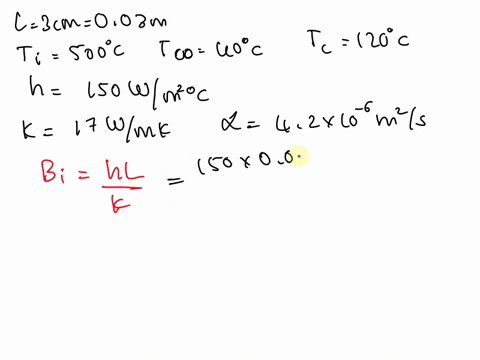 L=3cm=0.03m
Ti = 500°C T∞= 40°C Tc = 120°C
h = 150 W/m²°C
K = 17 W/mk α = 4.2×10⁻⁶ m²/s
Bi = hL/K = 150 × 0.0